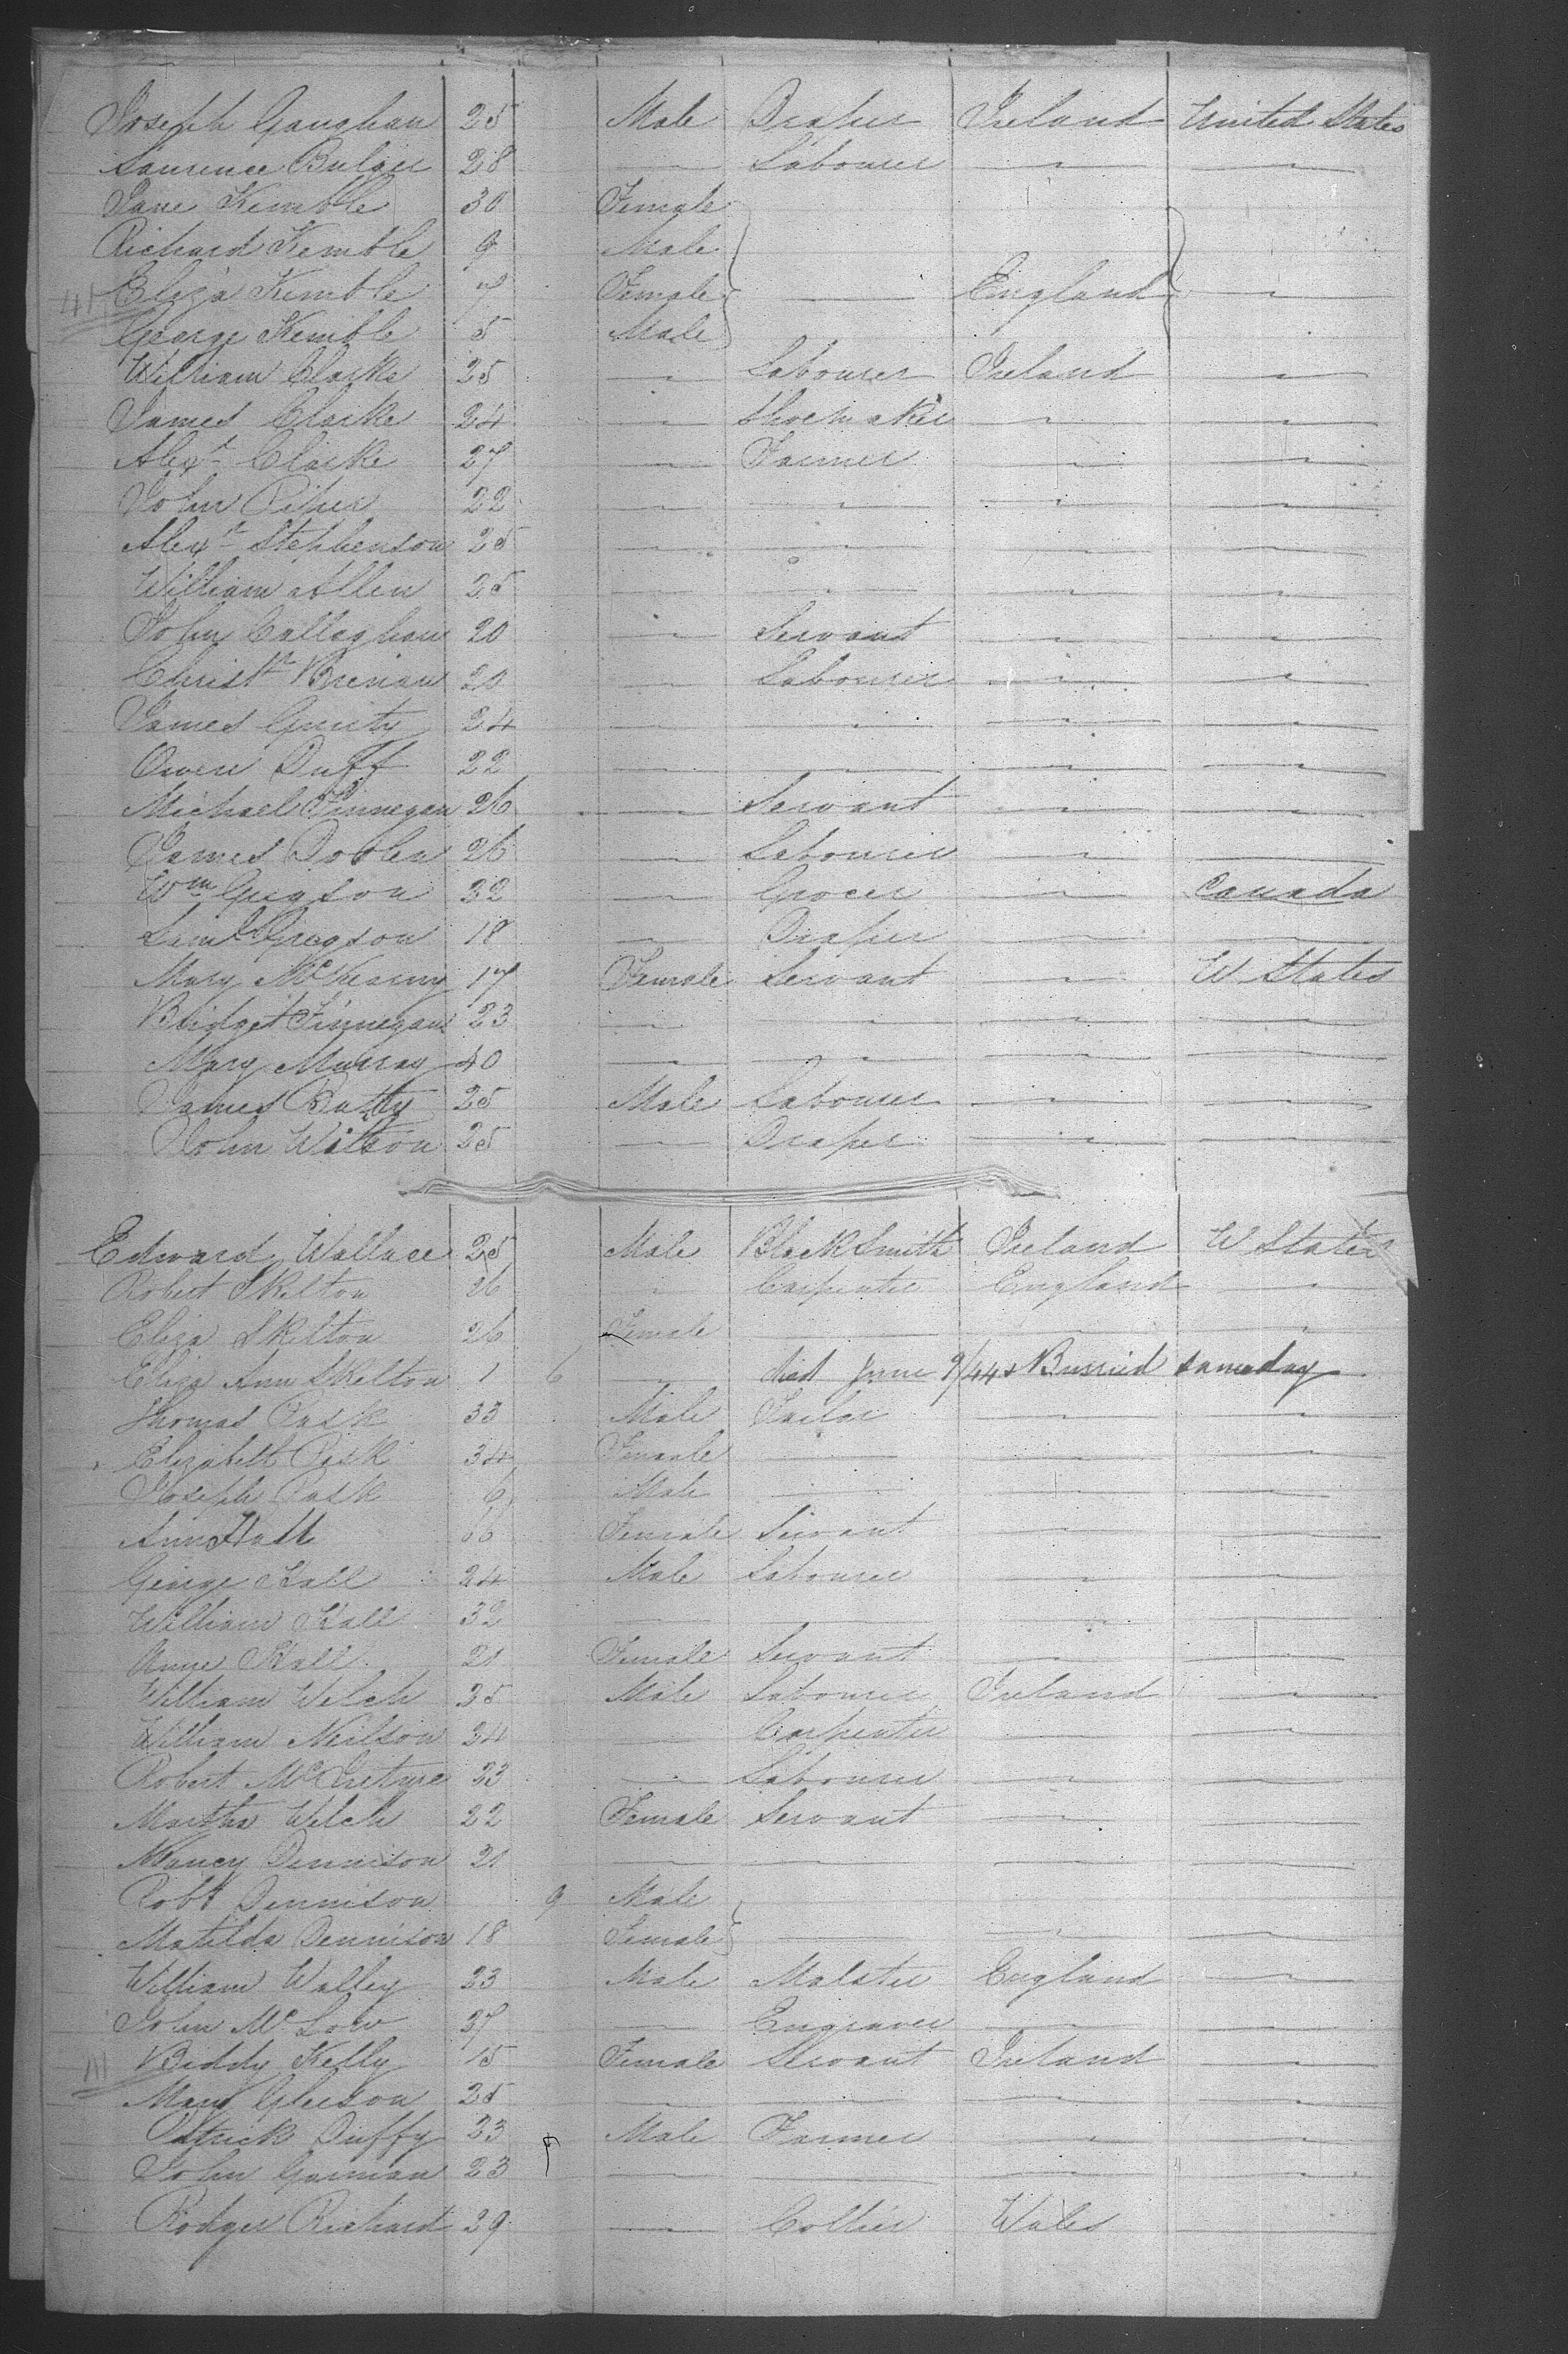 Joseph Gaughan 25 Male Draper Ireland United States
Laurence Bulger 28 — Labourer — —
Jane Kemble 30 Female
Richard Kemble 9 Male
Eliza Kemble 7 Female — England —
George Kemble 5 Male
William Clarke 25 — Labourer Ireland —
James Clarke 24 — Shoemaker — —
Alexr Clarke 27 — Farmer — —
John Piper 22 — — — —
Alexr Stephenson 25 — — — —
William Allen 25 — — — —
John Callaghan 20 — Servant — —
Christr Brenan 20 — Labourer — —
James Guirty 24 — — — —
Owen Duff 22 — — — —
Michael Finnegan 26 — Servant — —
James Doolen 26 — Labourer — —
Wm Gregson 32 — Grocer — Canada
Saml Gregson 18 — Draper — —
Mary McKearny 17 Female Servant — U States
Bridget Finnegan 23 — — — —
Mary Murray 40 — — — —
James Batty 25 Male Labourer — —
John Watson 25 — Draper — —
Edward Wallace 25 Male BlackSmith Ireland U States
Robert Skelton 26 — Carpenter England —
Eliza Skelton 26 Female — — —
Eliza Ann Skelton 1 6 — died June 9/44 & Burried same day
Thomas Pask 33 Male Tailor — —
Elizabeth Pask 34 Female — — —
Joseph Pask 6 Male — — —
Ann Hall 66 Female Servant — —
George Hall 24 Male Labourer — —
William Hall 32 — — — —
Anne Hall 21 Female Servant — —
William Welch 25 Male Labourer Ireland —
William Neilson 24 — Carpenter — —
Robert Mc 23 — Labourer — —
Martha Welch 22 Female Servant — —
Nancy Dennison 21 — — — —
Robt Dennison 9 Male
Matilda Dennison 18 Female — — —
William Walley 23 Male Malster England —
John McLow 37 — Engraver — —
Biddy Kelly 15 Female Servant Ireland —
Mary Gleeson 25 — — — —
Patrick Duffy 23 Male Farmer — —
John Gorman 23 — — — —
Rodger Richard 29 — Collier Wales —